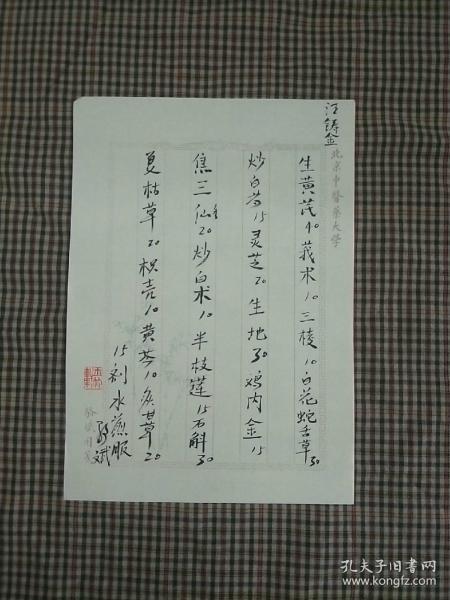 汪铸金
北京中医药大学
生黄芪40 莪术10 三棱10 白花蛇舌草30
炒白芍15 灵芝20 生地30 鸡内金15
焦三仙各20 炒白术10 半枝莲15 石斛30
夏枯草20 枳壳10 黄芩10 炙甘草20
15剂 水煎服
孔夫子旧书网
www.kongfz.com